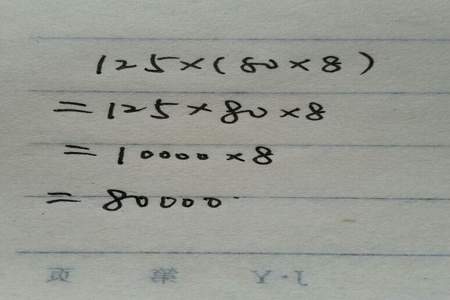 125×(80×8)
=125×80×8
=10000×8
=80000